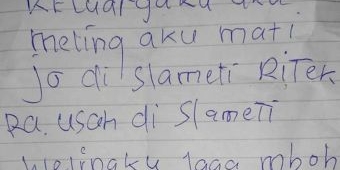 meling aku mati
jo di slameti RiTek
Ra. usah di Slameti
welingku jaga mboh